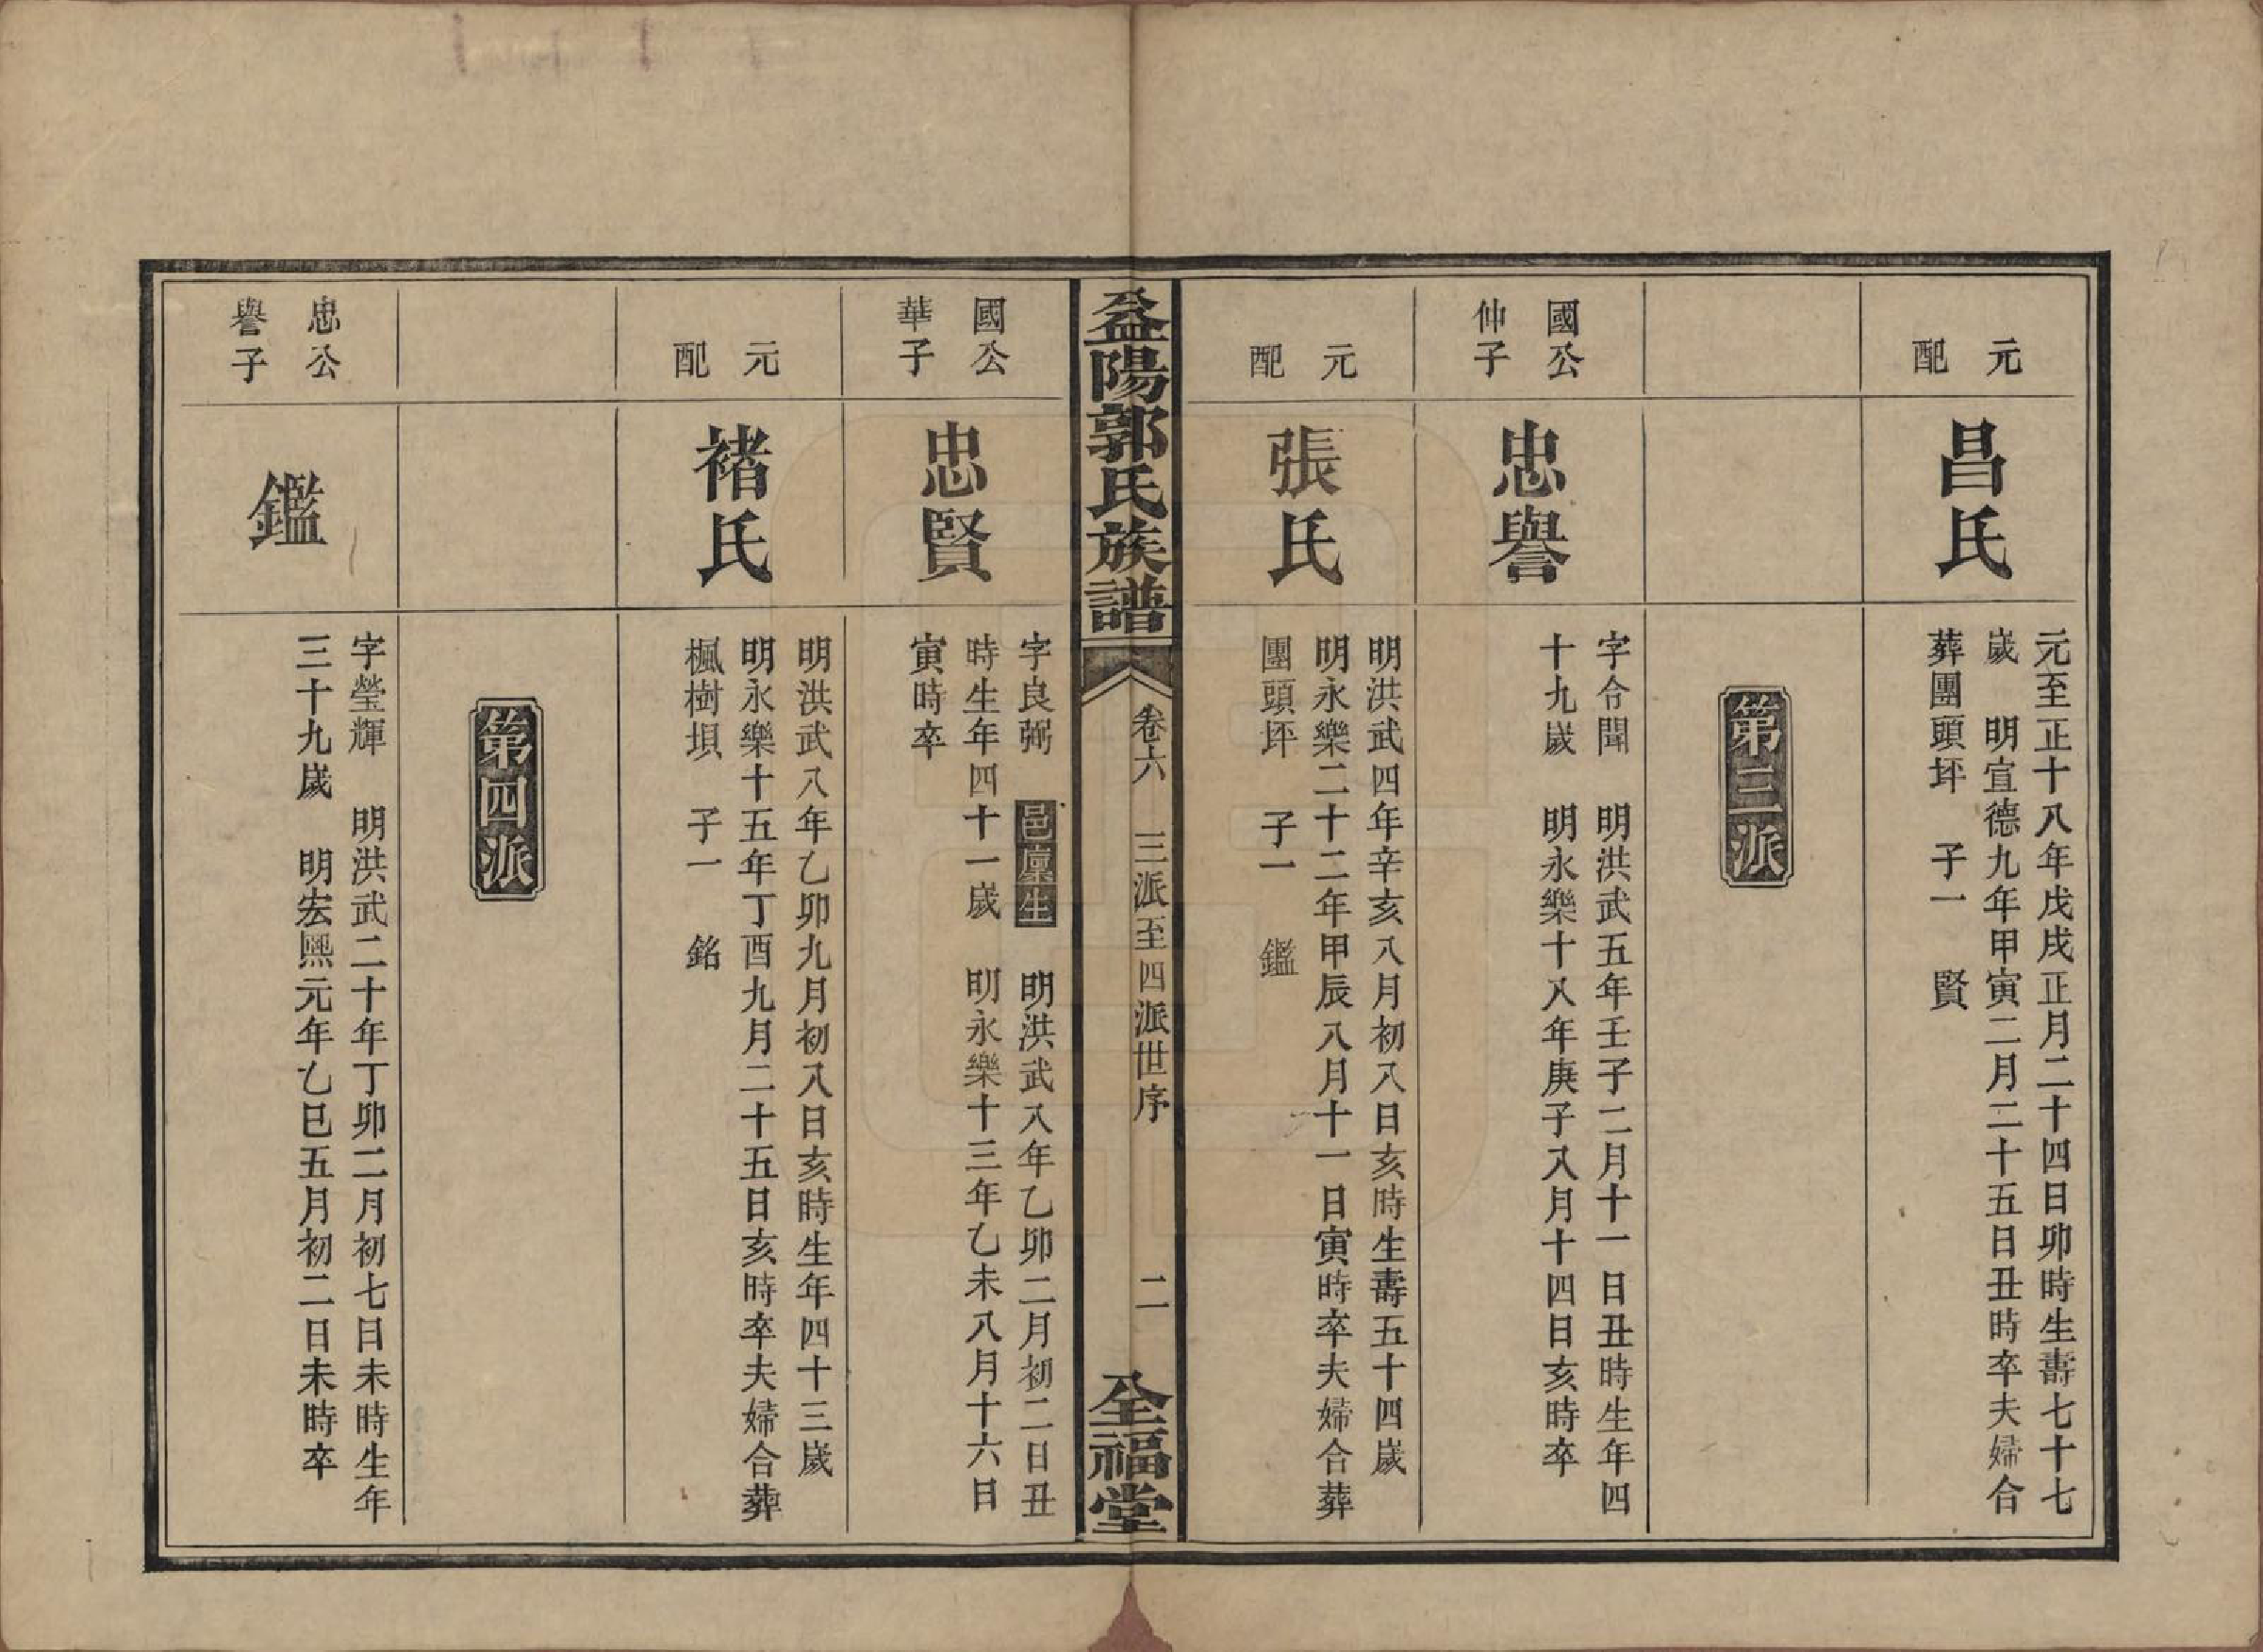 元配
昌氏
元至正十八年戊戌正月二十四日卯時生壽七十七
歲　明宣德九年甲寅二月二十五日丑時卒夫婦合
葬團頭坪　子一　賢
第三派
國公
仲子
忠譽
字令聞　明洪武五年壬子二月十一日丑時生年四
十九歲　明永樂十八年庚子八月十四日亥時卒
元配
張氏
明洪武四年辛亥八月初八日亥時生壽五十四歲
明永樂二十二年甲辰八月十一日寅時卒夫婦合葬
團頭坪　子一　鑑
益陽郭氏族譜
卷六　三派至四派世序
二
全福堂
國公
華子
忠賢
字良弼　邑廩生　明洪武八年乙卯二月初二日丑
時生年四十一歲　明永樂十三年乙未八月十六日
寅時卒
元配
褚氏
明洪武八年乙卯九月初八日亥時生年四十三歲
明永樂十五年丁酉九月二十五日亥時卒夫婦合葬
楓樹垻　子一　銘
第四派
忠公
譽子
鑑
字瑩輝　明洪武二十年丁卯二月初七日未時生年
三十九歲　明宏熙元年乙巳五月初二日未時卒